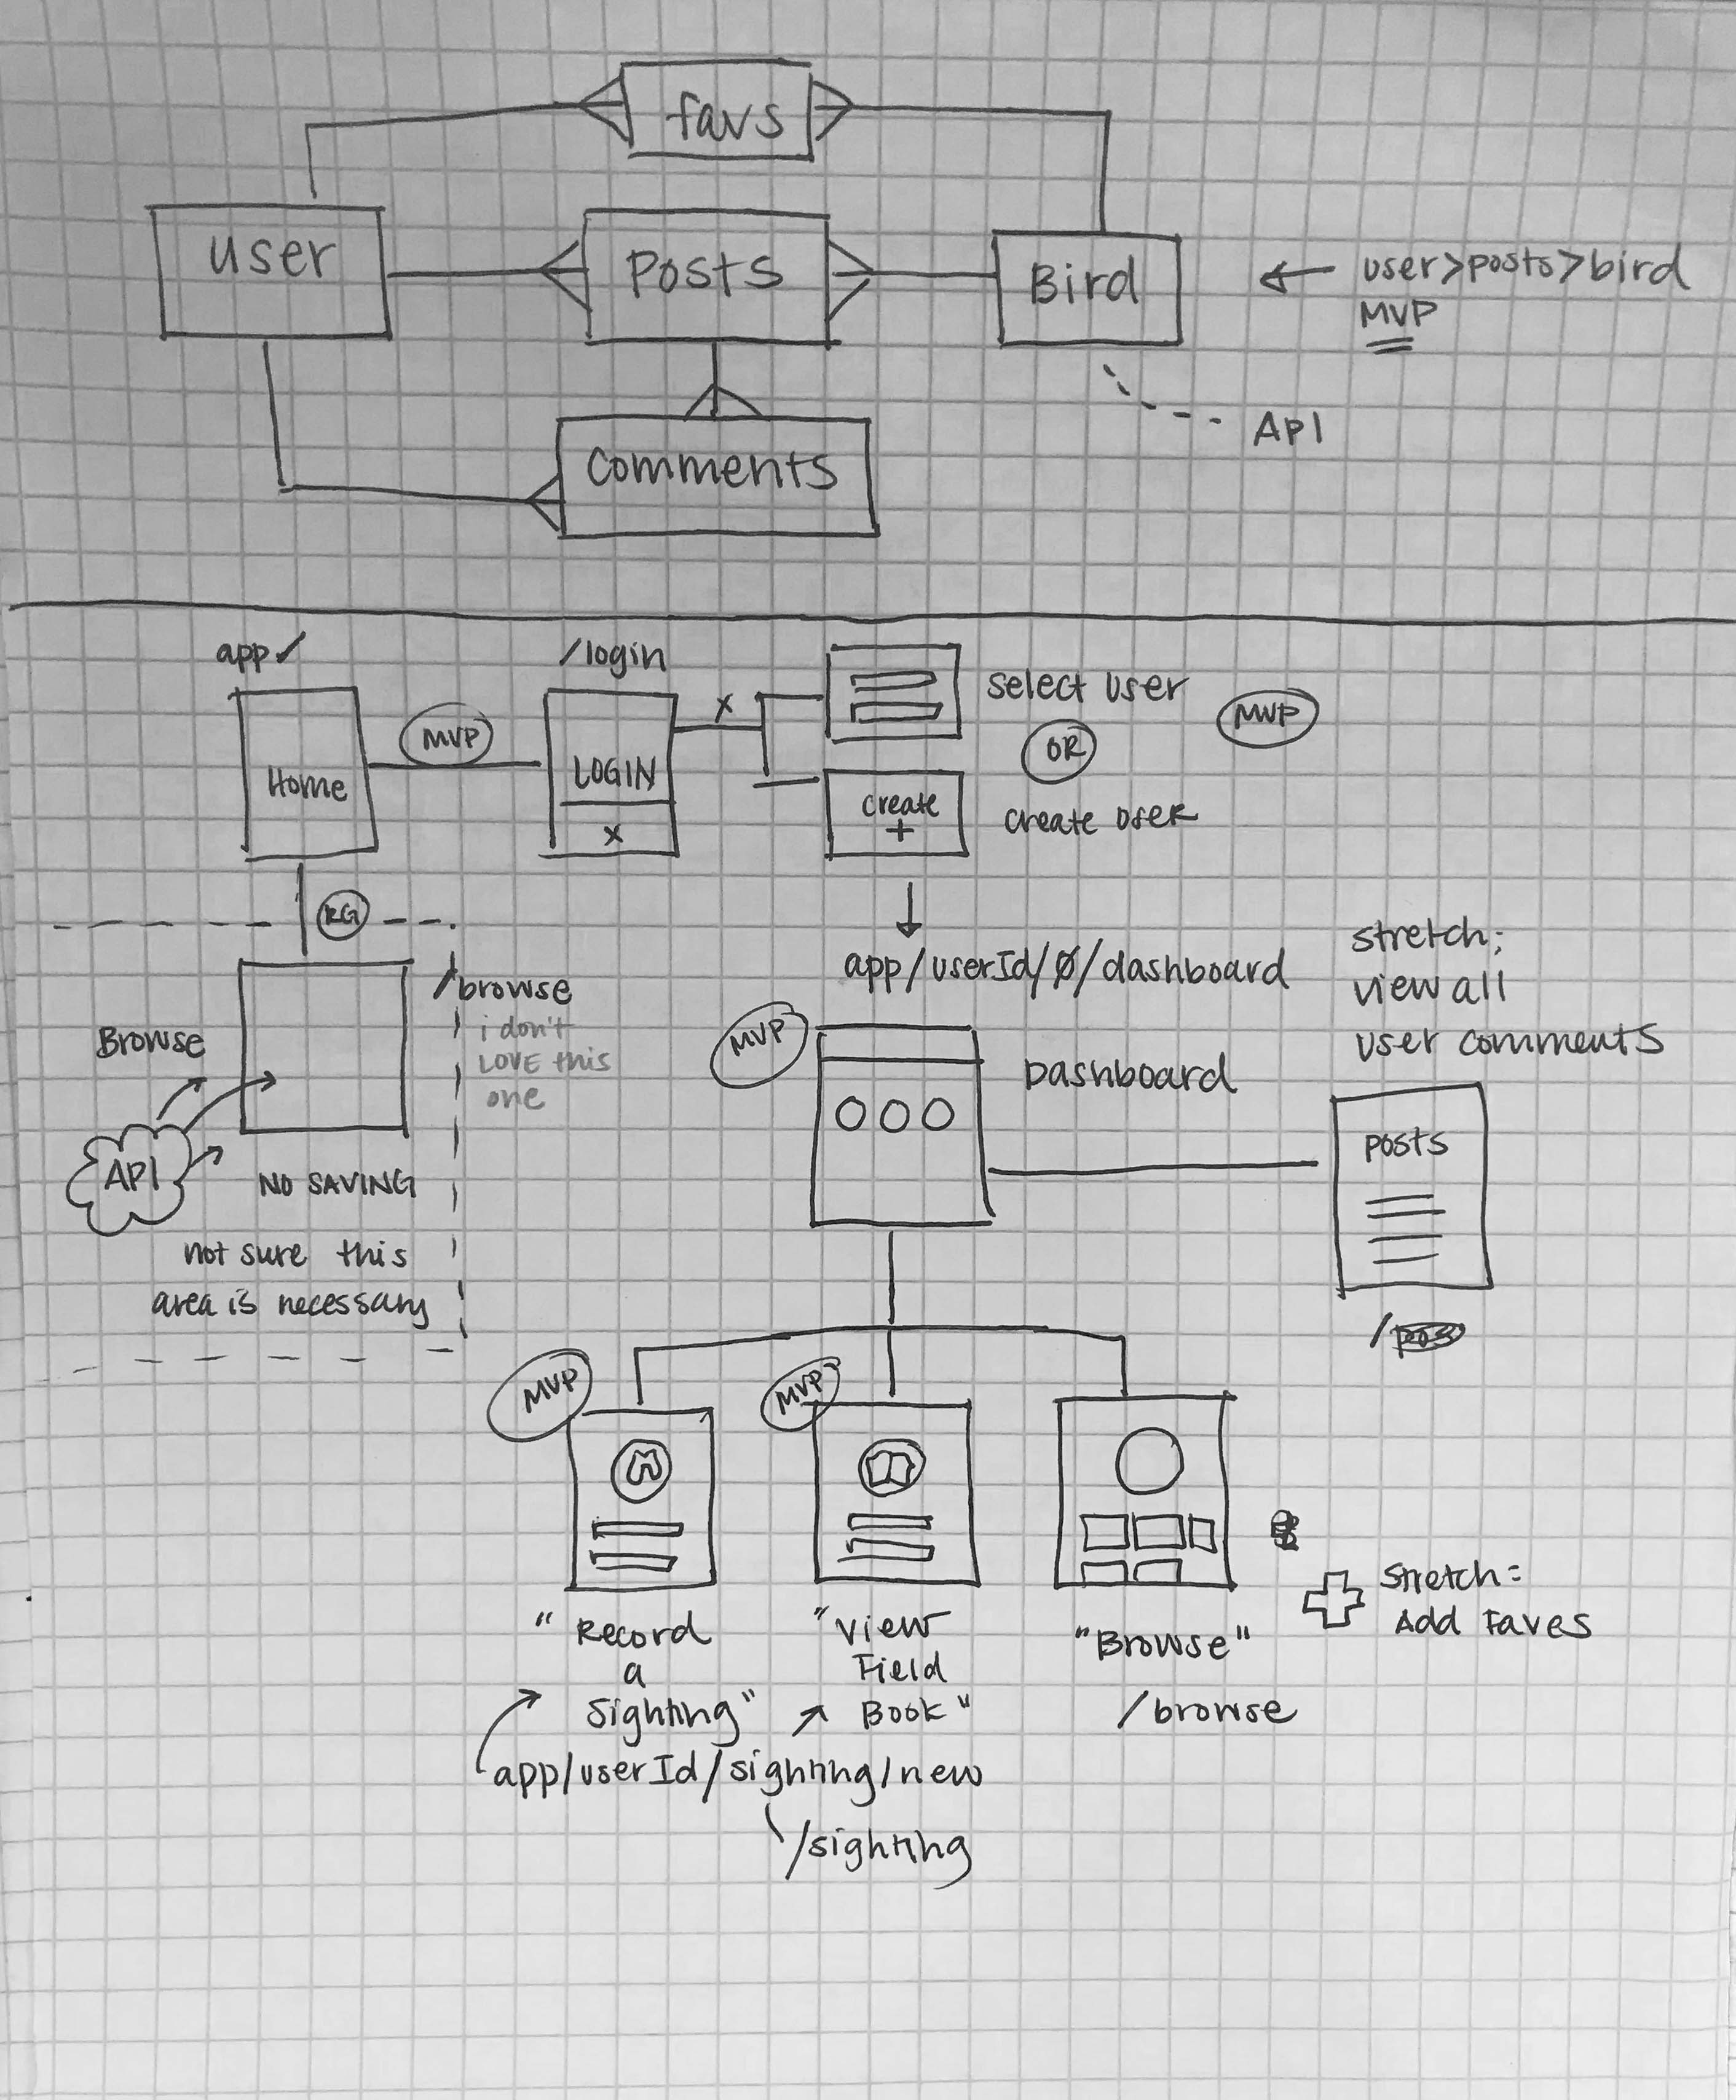 favs
user
Posts
Bird
user>posts>bird
MVP
API
comments
app
/login
Home
MVP
LOGIN
x
x
select user
OR
create
+
create user
MVP
RG
Browse
/browse
i don't
LOVE this
one
API
NO SAVING
not sure this
area is necessary
app/userId/Ø/dashboard
MVP
Dashboard
stretch:
view all
user comments
posts
/
MVP
MVP
"Record
a
Sighting"
"View
Field
Book"
"Browse"
/browse
Stretch:
Add Faves
app/userId/sighting/new
/sighting